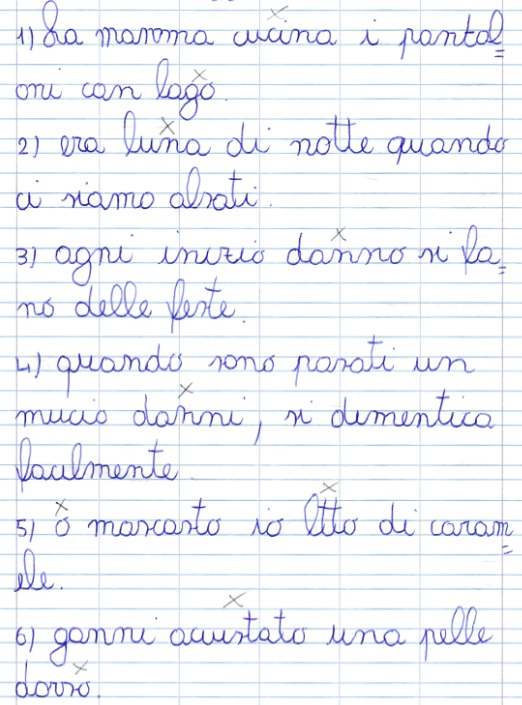 1) La mamma cucina i pantal=
oni con lago.
2) era luna di notte quando
ci siamo alsati.
3) agni inizio danno si fa=
no delle feste.
4) quando sono pasati un
mucio danni, si dimentica
facilmente.
5) o mascasto io letto di caram=
ele.
6) ganni acuistato una pelle
dorso.